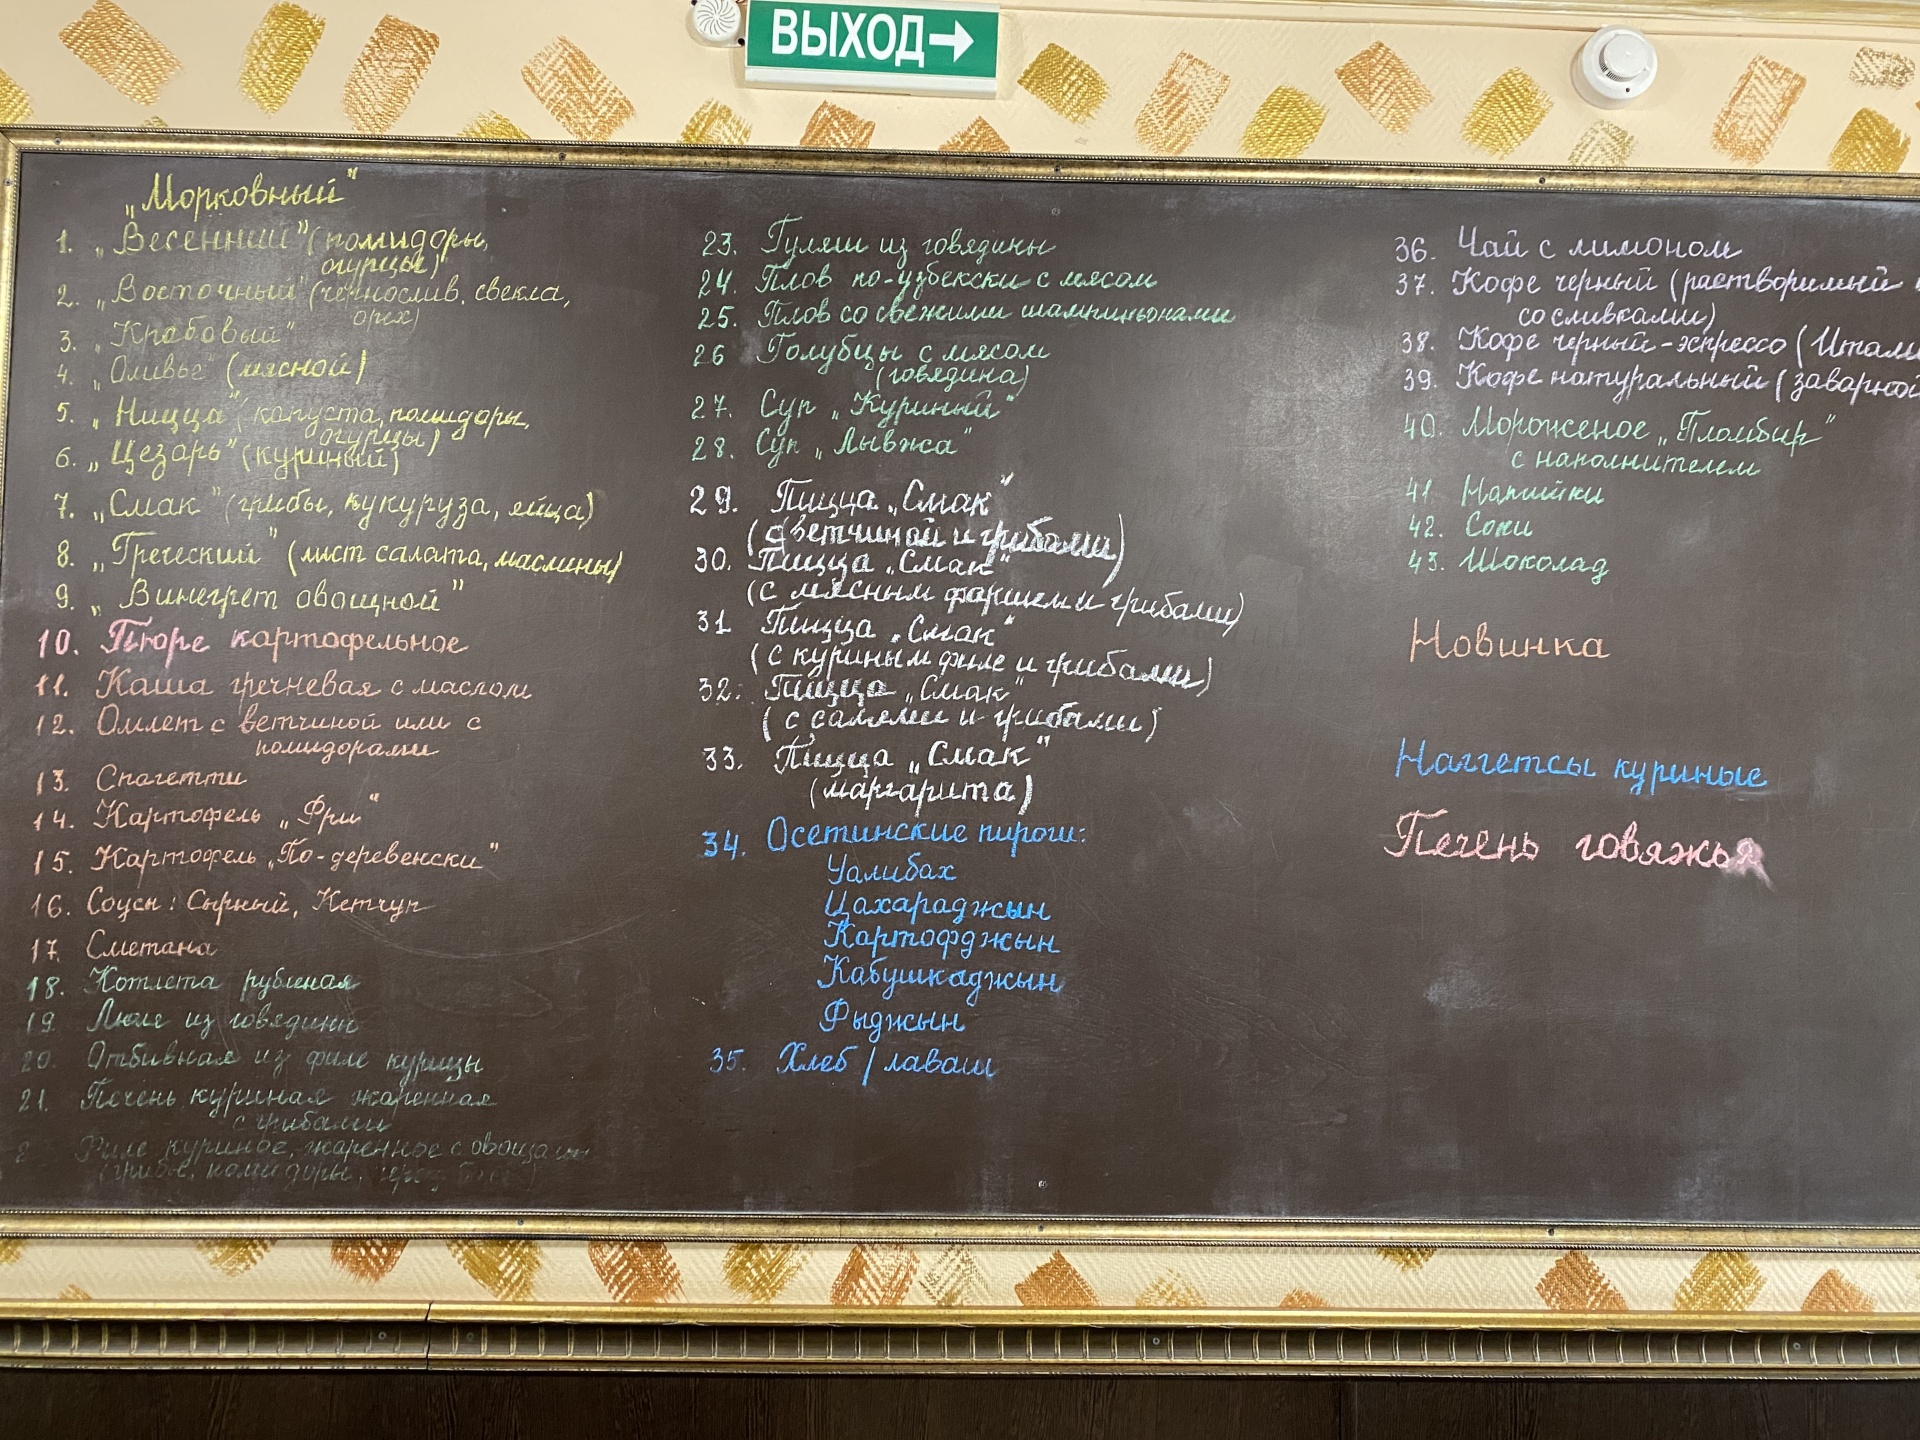 ВЫХОД→
„Морковный"
1. „Весенний" (помидоры,
огурцы)
2. „Восточный" (чернослив, свекла,
орех)
3. „Крабовый"
4. „Оливье" (мясной)
5. „Ницца" (капуста, помидоры,
огурцы)
6. „Цезарь" (куриный)
7. „Смак" (грибы, кукуруза, яйца)
8. „Греческий" (лист салата, маслины)
9. „Винегрет овощной"
10. Пюре картофельное
11. Каша гречневая с маслом
12. Омлет с ветчиной или с
помидорами
13. Спагетти
14. Картофель „Фри"
15. Картофель „По-деревенски"
16. Соусы: Сырный, Кетчуп
17. Сметана
18. Котлета рубленая
19. Люля из говядины
20. Отбивная из филе курицы
21. Печень куриная жаренная
с грибами
2 Филе куриное, жаренное с овощами
(грибы, помидоры,
23. Гуляш из говядины
24. Плов по-узбекски с мясом
25. Плов со свежими шампиньонами
26 Голубцы с мясом
(говядина)
27. Суп „Куриный"
28. Суп „Лывжа"
29. Пицца „Смак"
(с ветчиной и грибами)
30. Пицца „Смак"
(с мясным фаршем и грибами)
31 Пицца „Смак"
(с куриным филе и грибами)
32. Пицца „Смак"
(с салями и грибами)
33. Пицца „Смак"
(маргарита)
34. Осетинские пироги:
Уалибах
Цахараджын
Картофджын
Кабушкаджын
Фыджын
35. Хлеб / лаваш
36. Чай с лимоном
37. Кофе черный (растворимый
со сливками)
38. Кофе черный-эспрессо (Итали
39. Кофе натуральный (заварной
40. Мороженое „Пломбир"
с наполнителем
41. Напитки
42. Соки
43. Шоколад
Новинка
Наггетсы куриные
Печень говяжья